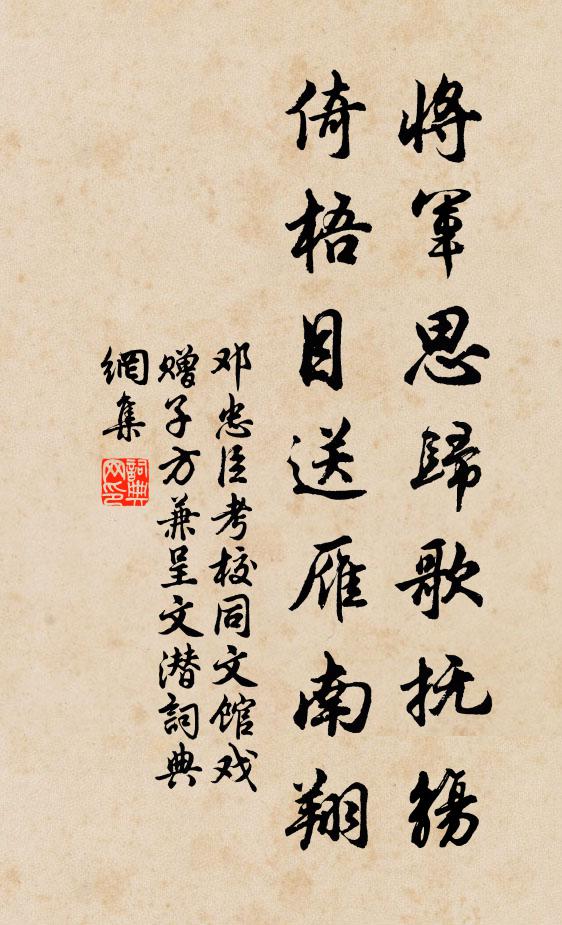 將軍思歸歌抚觴
倚梧目送雁南翔
邓忠臣考校同文馆戏
赠子方兼呈文潜詞典
網集
詞典网印